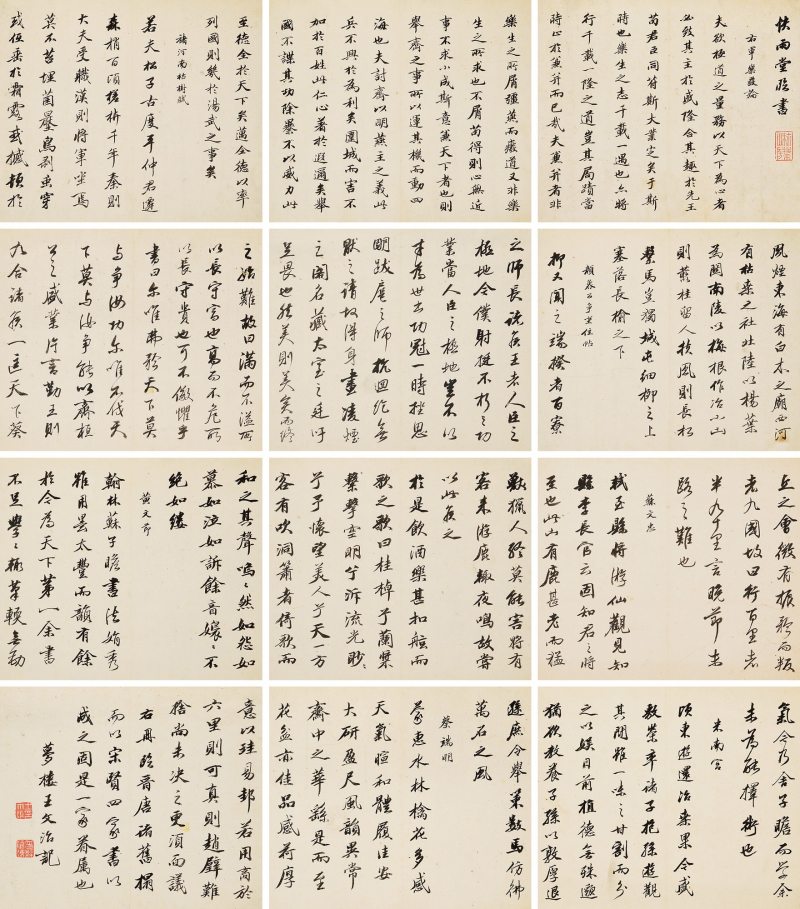 快雨堂臨書
右軍樂毅論
夫欲極道之量務以天下為心者
必致其主於盛隆合其趣於先王
苟君臣同符斯大業定矣于斯
時也樂生之志千載一遇也亦將
行千載一隆之道豈其局蹟當
時止於兼并而已哉夫兼并者非
樂生之所屑彊燕而廢道又非樂
生之所求也不屑苟得則心無近
事不求小成斯意兼天下者也則
舉齊之事所以運其機而動四
海也夫討齊以明燕主之義此
兵不興於為利矣圍城而害不
加於百姓此仁心著於遐邇矣舉
國不謀其功除暴不以威力此
至德全於天下矣邁全德以率
列國則幾於湯武之事矣
褚河南枯樹賦
若夫松子古度平仲君遷
森梢百頃槎枿千年秦則
大夫受職漢則將軍坐焉
莫不苔埋菌壓鳥剝蟲穿
或低垂於霜露或撼頓於
風煙東海有白木之廟西河
有枯桑之社北陸以楊葉
為關南陵以梅根作冶小山
則叢桂留人扶風則長松
繫馬豈獨城細柳之上
塞落長榆之下
顏魯公爭坐位帖
抑又聞之端揆者百寮
之師長諸侯王者人臣之
極地今僕射挺不朽之功
業當人臣之極地豈不以
才為世出功冠一時挫思
明跋扈之師抗迴紇無
厭之請故得身畫凌煙
之閣名藏太室之廷吁
足畏也然美則美矣而終
之始難故曰滿而不溢所
以長守富也高而不危所
以長守貴也可不儆懼乎
書曰爾唯弗矜天下莫
與爭汝功爾唯不伐天
下莫與汝爭能以齊桓
公之盛業片言勤王則
九合諸侯一匡天下葵
丘之會微有振矜而叛
者九國故曰行百里者
半九十里言晚節末
路之難也
蘇文忠
軾至縣將游仙觀見知
縣李長官云固知君之將
至也此山有鹿甚老而猛
獸獵人終莫能害將有
客來游鹿輒夜鳴故嘗
以此候之
於是飲酒樂甚扣舷而
歌之歌曰桂棹兮蘭槳
擊空明兮泝流光眇〻
兮予懷望美人兮天一方
客有吹洞簫者倚歌而
和之其聲嗚〻然如怨如
慕如泣如訴餘音嫋〻不
絕如縷
黃文節
翰林蘇子瞻書法娟秀
雖用墨太豐而韻有餘
於今為天下第一余書
不足學〻者輒筆軟無勁
氣今乃舍子瞻而學余
未為能擇術也
米南宮
頃東遊還桑果今盛
敷榮率諸子抱孫遊觀
其間雖一味之甘割而分
之以娛目前植德無殊邈
猶欲教養子孫以敦厚退
遜庶令舉策數馬仿彿
萬石之風
蔡端明
蒙惠水林檎花多感
天氣暄和體履佳安
大研盈尺風韻異常
齋中之華繇是而至
花盆亦佳品感荷厚
意以珪易邽若用商於
六里則可真則趙璧難
捨尚未決之更須面議
右冊臨晉唐諸舊搨
而以宋賢四家書以
成之固是一家眷屬也
夢樓王文治記